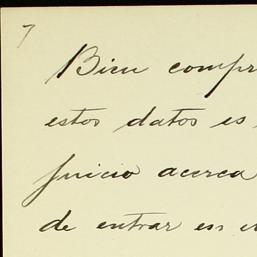 7
Bien compr
estos datos es
juicio acerca
de entrar en